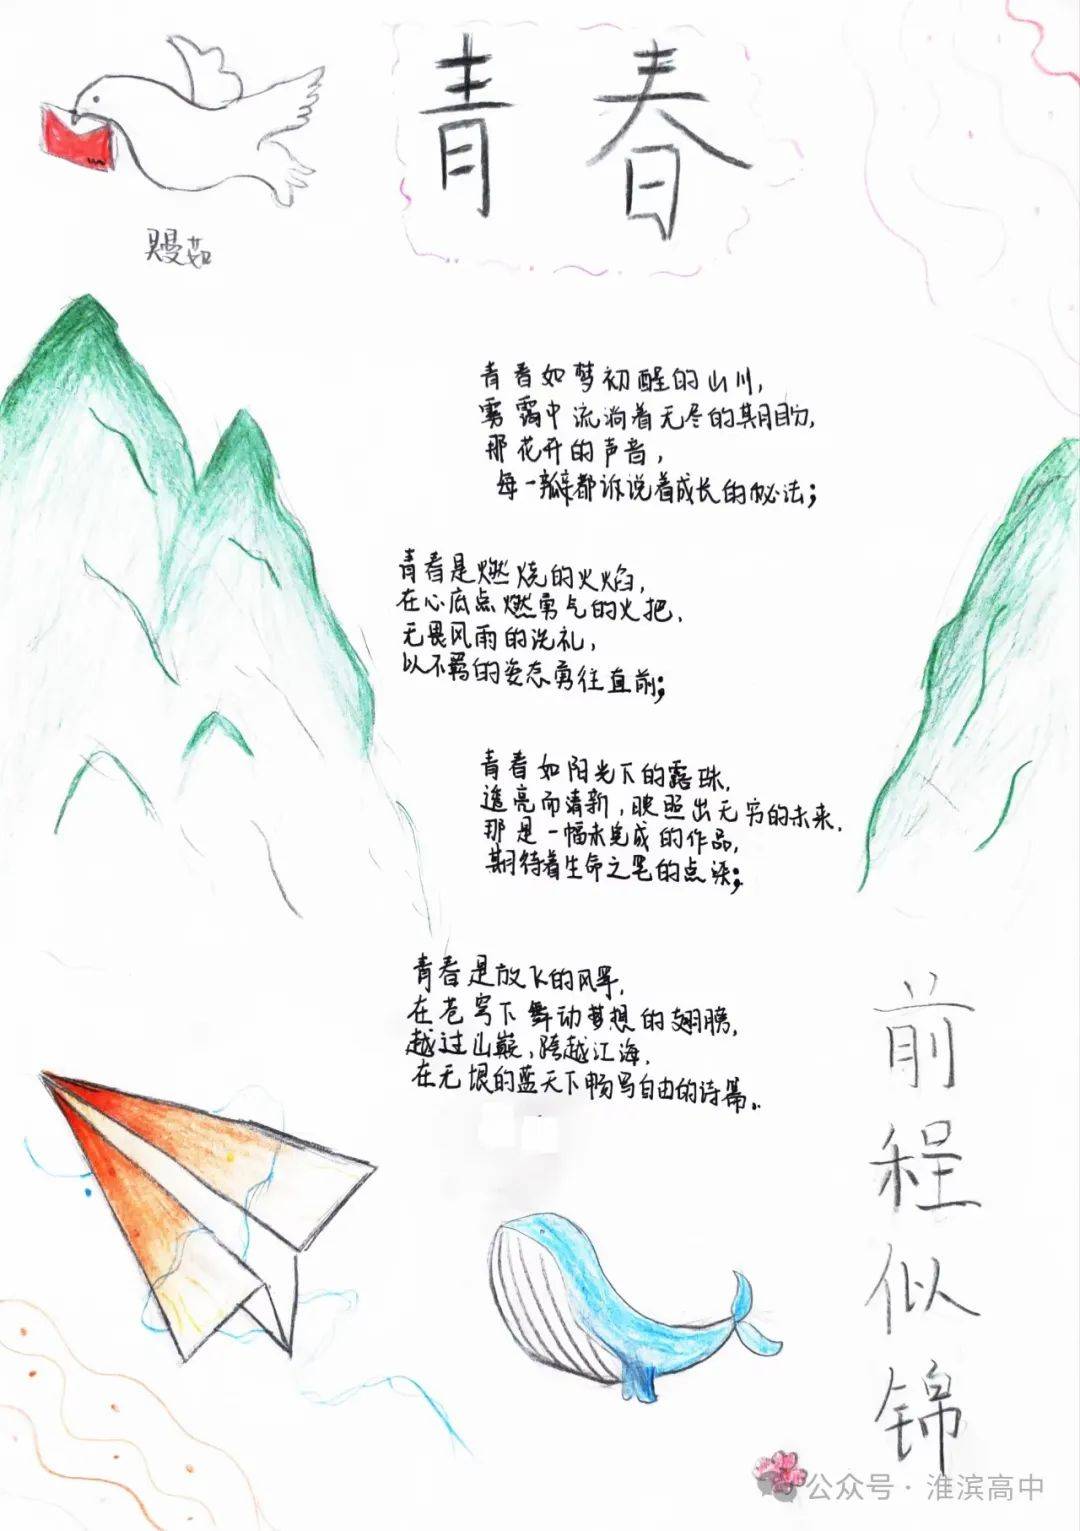 青春
吴曼茹
青春如梦初醒的山川,
雾霭中流淌着无尽的期盼,
那花开的声音,
每一瓣都诉说着成长的秘法;
青春是燃烧的火焰,
在心底点燃勇气的火把,
无畏风雨的洗礼,
以不羁的姿态勇往直前;
青春如阳光下的露珠,
透亮而清新,映照出无穷的未来,
那是一幅未完成的作品,
期待着生命之笔的点添;
青春是放飞的风筝,
在苍穹下舞动梦想的翅膀,
越过山巅,跨越江海,
在无垠的蓝天下畅写自由的诗篇。
前程似锦
公众号·淮滨高中